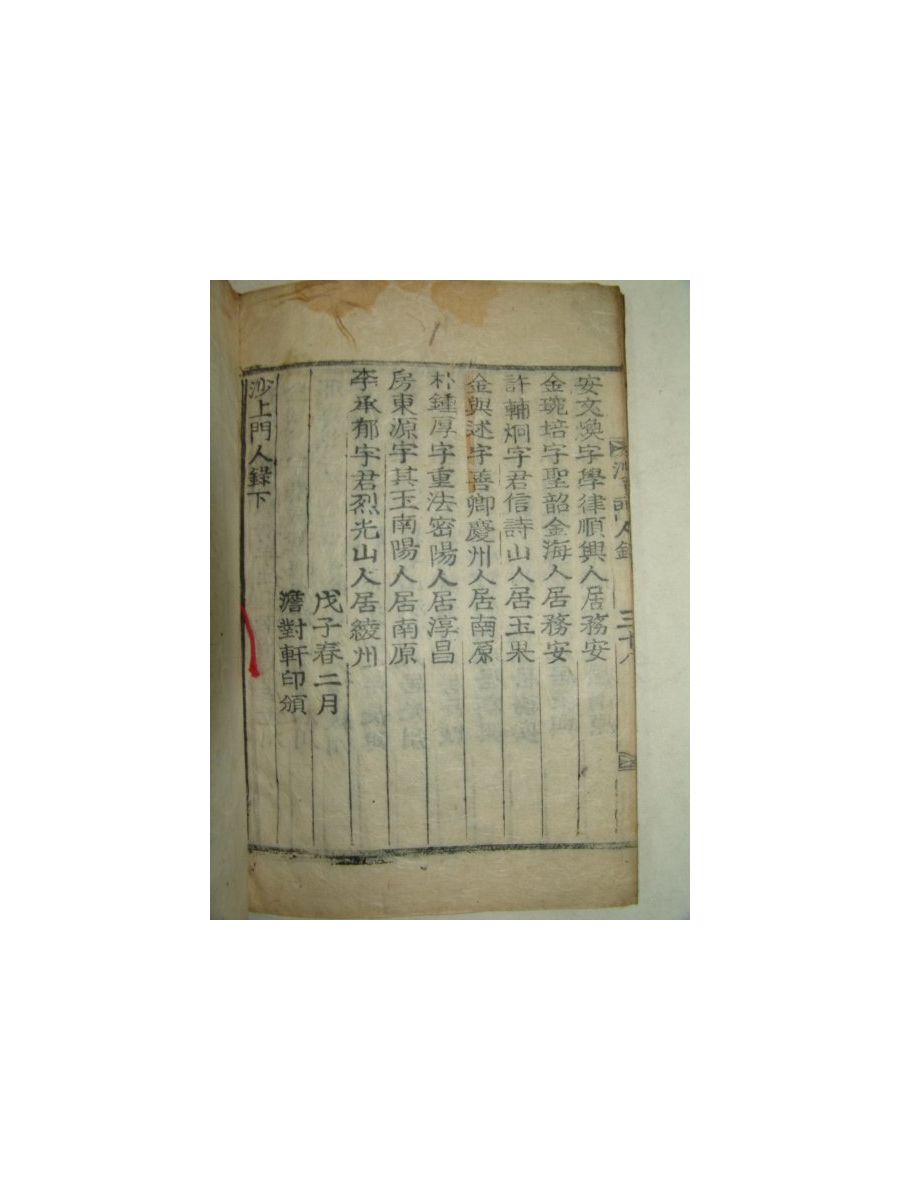 安文煥字學律順興人居務安
金琬培字聖韶金海人居務安
許輔炯字君信詩山人居玉果
金與述字善卿慶州人居南原
朴鍾厚字重法密陽人居淳昌
房東源字其玉南陽人居南原
李承郁字君烈光山人居綾州
戊子春二月
澹對軒印頒
沙上門人錄下